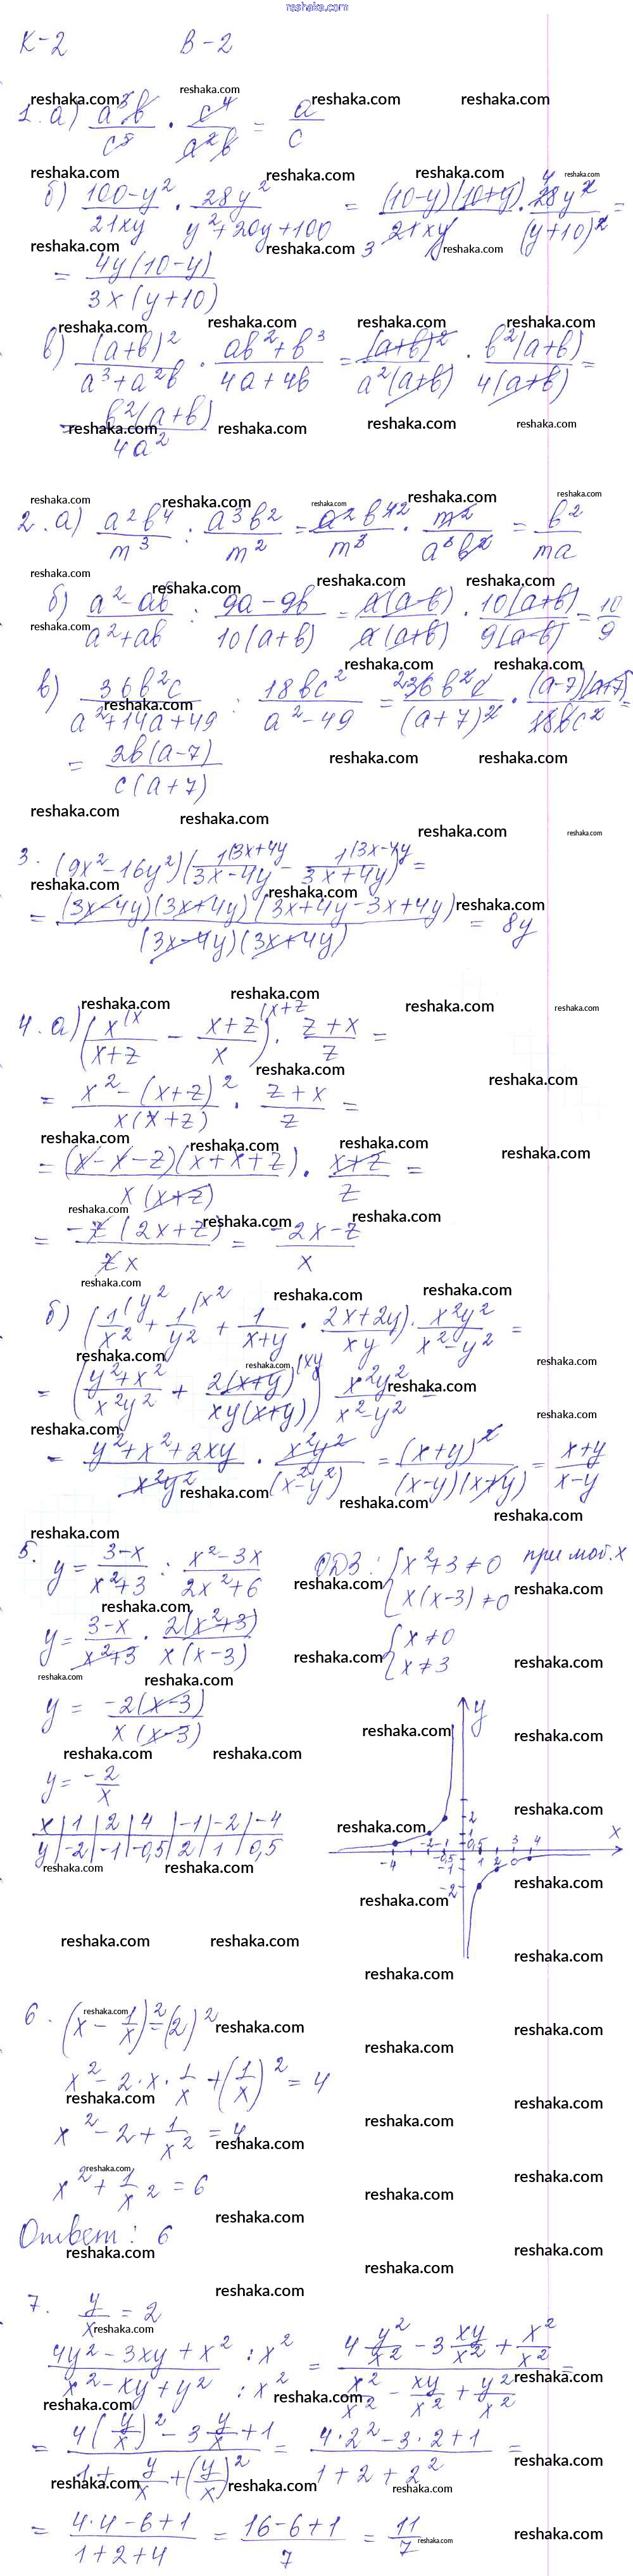 reshaka.com
К-2 В-2
1. а) a³b/c⁵ · c⁴/a²b = a/c
б) 100-y²/21xy · 28y²/y²+20y+100 = (10-y)(10+y)/3 21xy · 4 28y²/(y+10)² =
= 4y(10-y)/3x(y+10)
в) (a+b)²/a³+a²b · ab²+b³/4a+4b = (a+b)²/a²(a+b) · b²(a+b)/4(a+b) =
= b²(a+b)/4a²
2. а) a²b⁴/m³ : a³b²/m² = a²b⁴²/m³ · m²/a³b² = b²/ma
б) a²-ab/a²+ab : 9a-9b/10(a+b) = a(a-b)/a(a+b) · 10(a+b)/9(a-b) = 10/9
в) 36b²c/a²+14a+49 : 18bc²/a²-49 = 2 36b²c/(a+7)² · (a-7)(a+7)/18bc² =
= 2b(a-7)/c(a+7)
3. (9x²-16y²)(1(3x+4y/3x-4y - 1(3x-4y/3x+4y) =
= (3x-4y)(3x+4y)(3x+4y-3x+4y)/(3x-4y)(3x+4y) = 8y
4. а) (x(x/x+z - x+z(x+z/x) · z+x/z =
= x²-(x+z)²/x(x+z) · z+x/z =
= (x-x-z)(x+x+z)/x(x+z) · x+z/z =
= -z(2x+z)/zx = -2x-z/x
б) (1(y²/x² + 1(x²/y² + 1/x+y · 2x+2y/xy) · x²y²/x²-y² =
= (y²+x²/x²y² + 2(x+y)(xy/xy(x+y)) x²y²/x²-y² =
= y²+x²+2xy/x²y² · x²y²/(x²-y²) = (x+y)²/(x-y)(x+y) = x+y/x-y
5. y = 3-x/x²+3 : x²-3x/2x²+6 ОДЗ: { x²+3 ≠ 0 при люб. x
x(x-3) ≠ 0
y = 3-x/x²+3 · 2(x²+3)/x(x-3) { x ≠ 0
x ≠ 3
y = -2(x-3)/x(x-3)
y = -2/x
x | 1 | 2 | 4 | -1 | -2 | -4
y | -2 | -1 | -0,5 | 2 | 1 | 0,5
y
x
2
1
0,5
-4 -2 -1 1 2 3 4
-0,5
-1
-2
6. (x - 1/x)² = (2)²
x² - 2·x·1/x + (1/x)² = 4
x² - 2 + 1/x² = 4
x² + 1/x² = 6
Ответ: 6
7. y/x = 2
4y²-3xy+x² :x²/x²-xy+y² :x² = 4 y²/x² - 3 xy/x² + x²/x² / x²/x² - xy/x² + y²/x² =
= 4(y/x)² - 3 y/x + 1 / 1 + y/x + (y/x)² = 4·2²-3·2+1/1+2+2² =
= 4·4-6+1/1+2+4 = 16-6+1/7 = 11/7